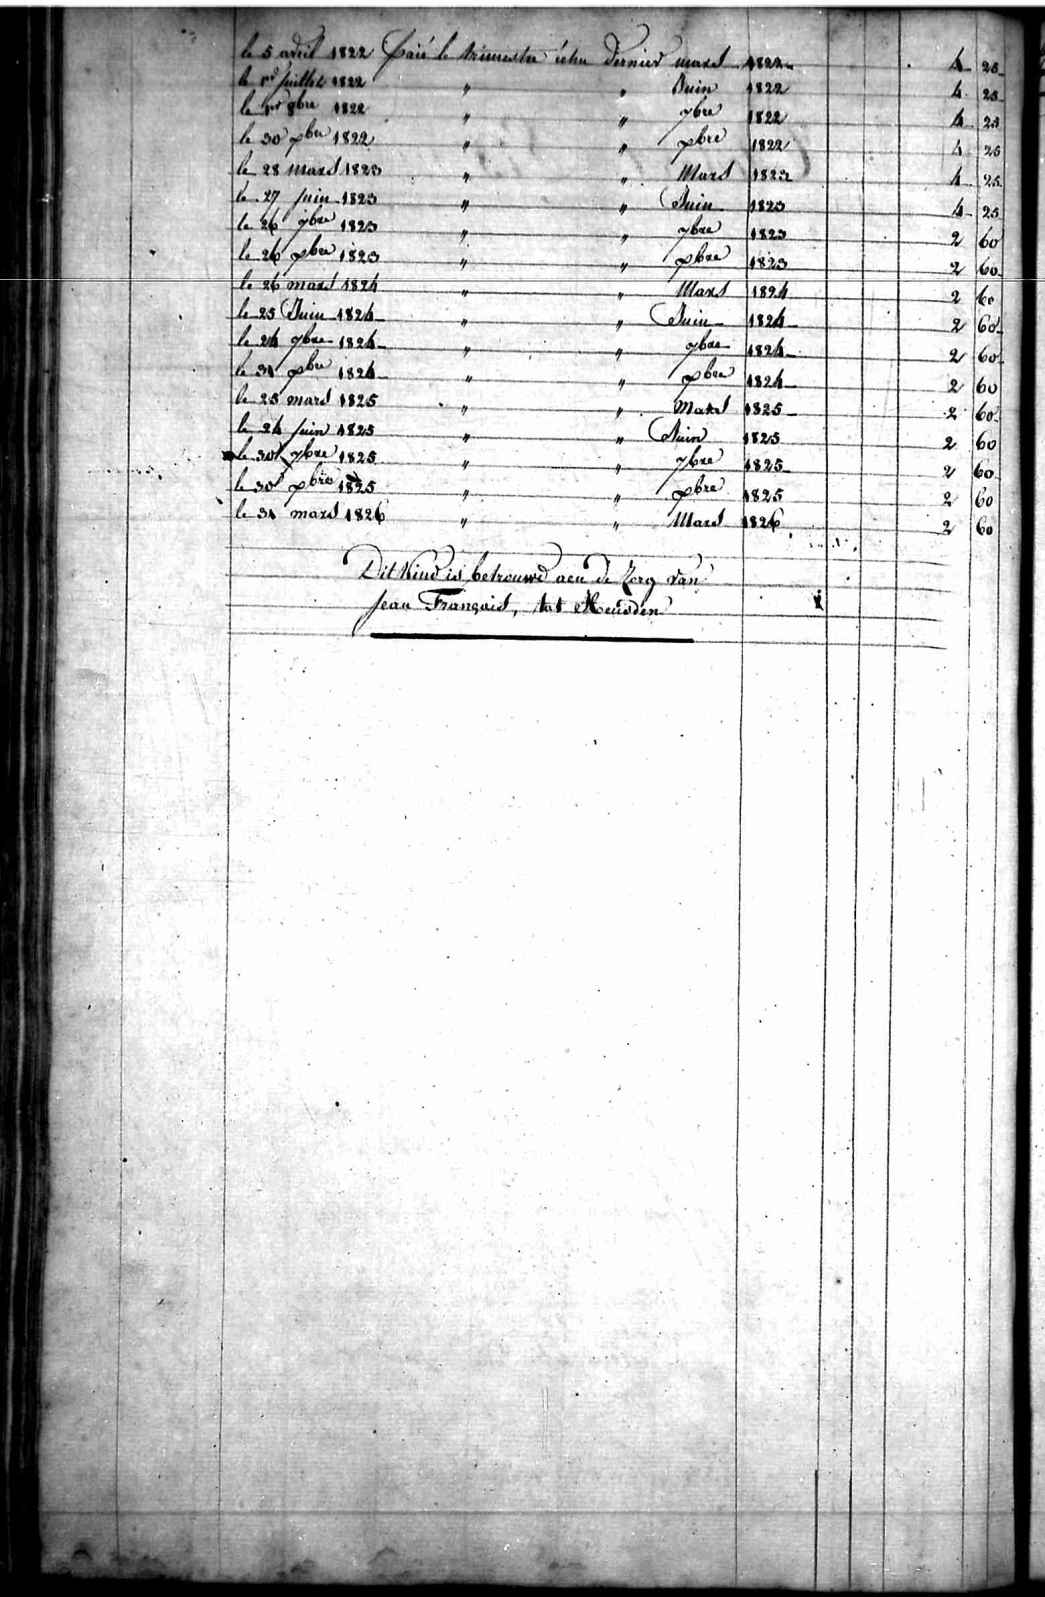 le 5 avril 1822 Paié le trimestre échu dernier mars 1822 4 25
le 1er Juillet 1822 " " Juin 1822 4 25
le 1er 8bre 1822 " " 7bre 1822 4 25
le 30 xbre 1822 " " xbre 1822 4 25
le 28 mars 1823 " " Mars 1823 4 25
le 27 Juin 1823 " " Juin 1823 4 25
le 26 7bre 1823 " " 7bre 1823 2 60
le 26 xbre 1823 " " xbre 1823 2 60
le 26 mars 1824 " " Mars 1824 2 60
le 25 Juin 1824 " " Juin 1824 2 60
le 24 7bre 1824 " " 7bre 1824 2 60
le 31 xbre 1824 " " xbre 1824 2 60
le 25 mars 1825 " " Mars 1825 2 60
le 24 Juin 1825 " " Juin 1825 2 60
le 30 7bre 1825 " " 7bre 1825 2 60
le 30 xbre 1825 " " xbre 1825 2 60
le 31 mars 1826 " " Mars 1826 2 60
Dit Kind is betrouwd aen de Zorg van
Jean François, tot Heusden